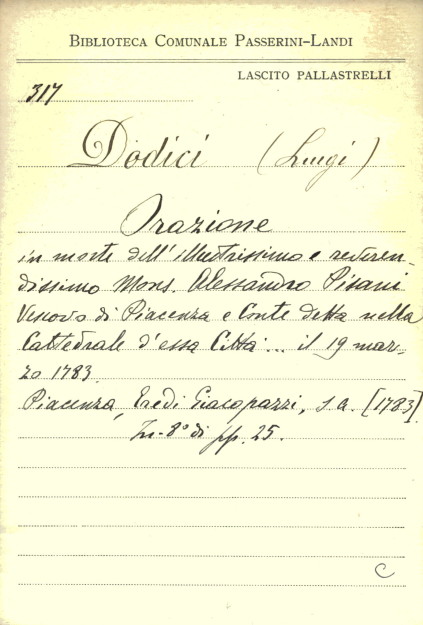 BIBLIOTECA COMUNALE PASSERINI-LANDI
LASCITO PALLASTRELLI
317
Dodici (Luigi)
Orazione
in morte dell'illustrissimo e reveren-
dissimo Mons. Alessandro Pisani
Vescovo di Piacenza e Conte detta nella
Cattedrale d'essa Città... il 19 mar-
zo 1783.
Piacenza, Eredi Giacopazzi, s a. [1783].
In-8° di pp. 25.
C